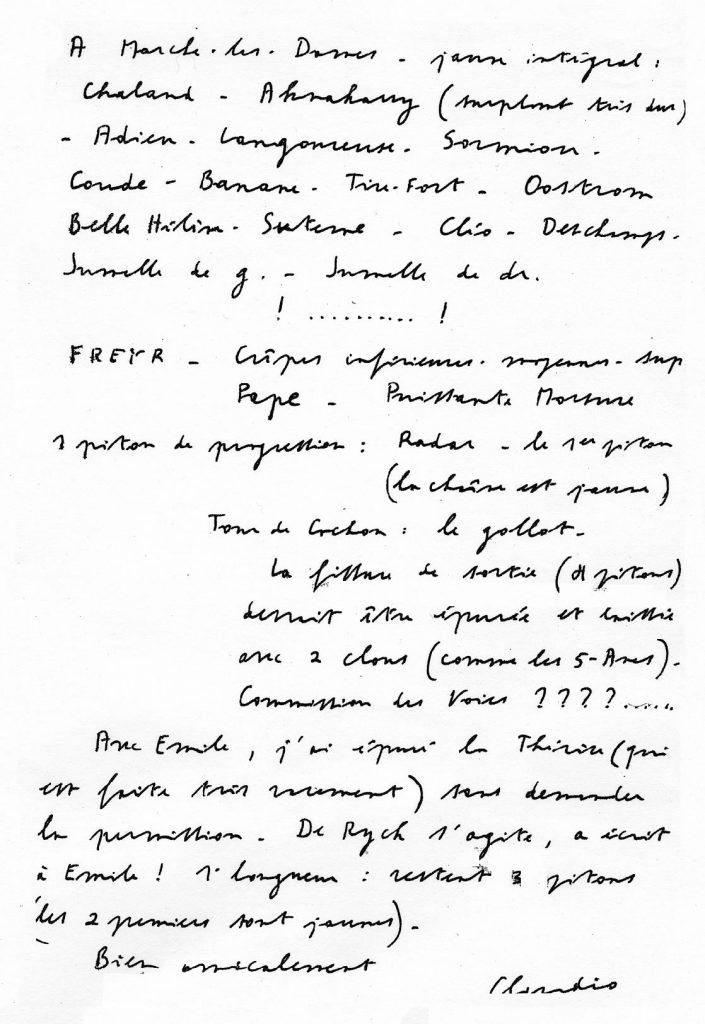 A Marche-les-Dames - jaune intégral :
Chaland - Ahrahamy (surplomb très dur)
- Adieu - Langoureuse - Sormiou -
Coude - Banane - Tire-Fort - Oostrom
Belle Hélène - Suterne - Cléo - Deschamps -
Jumelle de g. - Jumelle de dr.
! .......... !
FREYR - Crêpes inférieures - moyennes - sup
Pape - Puissante Morsure
1 piton de progression : Radar - le 1er piton
(la chaîne est jaune)
Tour de Crehon : le gollot -
La fissure de sortie (8 pitons)
devrait être épurée et laissée
avec 2 clous (comme les 5-Anes) -
Commission des Voies ????......
Avec Emile, j'ai épuré la Thérèse (qui
est faite très rarement) sans demander
la permission - De Rych s'agite, a écrit
à Emile ! 1° longueur : restent 3 pitons
(les 2 premiers sont jaunes) -
Bien amicalement
Claudio